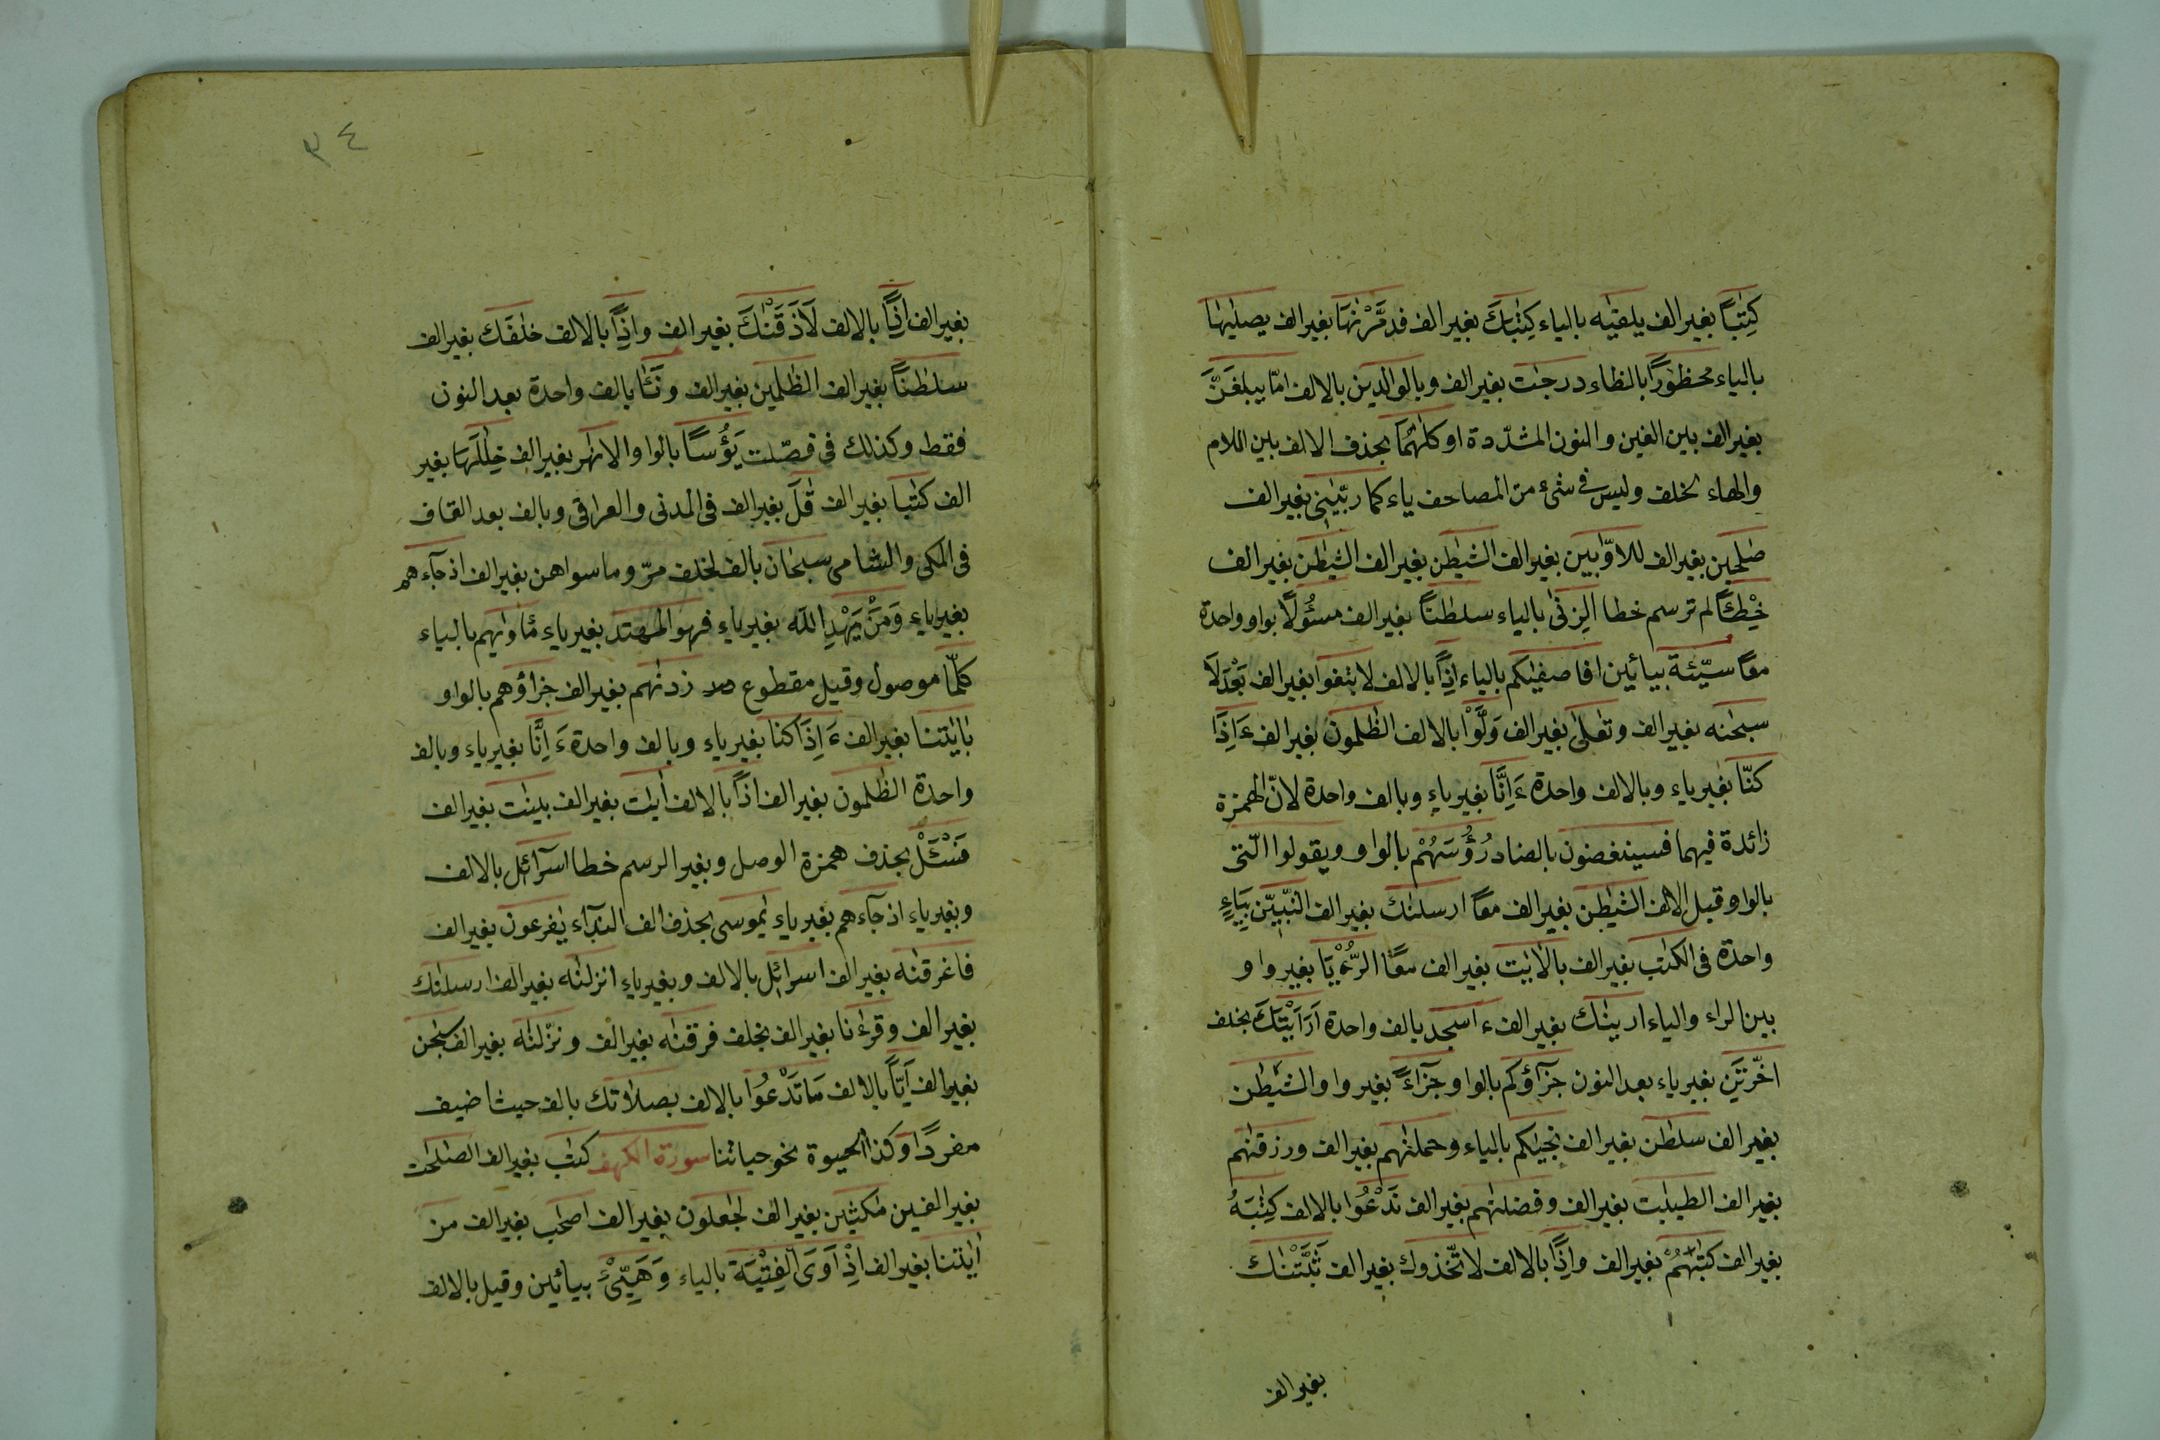 كِتٰبًا بغير الف يلقيٰه بالياء كِتٰبَكَ بغير الف فدمَّرْنٰهَا بغير الف يصليٰهٰا
بالياء محظورًا بالظاء درجٰت بغير الف وبالوالدين بالالف امّا يبلغنَّ
بغير الف بين الغين والنون المشدّدة او كلٰهُمَا بحذف الالف بين اللام
والهاء لخلف وليس فى شىء من المصاحف ياء كما ربّيٰنِى بغير الف
صٰلحين بغير الف للاوّٰبين بغير الف الشيٰطين بغير الف الشيٰطن بغير الف
خِطْـًٔا لم ترسم خطا الزِنٰى بالياء سلطٰنًا بغير الف مسـُٔولًا بواو واحدة
معًا سيّئة بيائين افاصفيٰكم بالياء اِذًا بالالف لابتغوا بغير الف بَعْدَ لَا
سبحٰنه بغير الف وتعٰلٰى بغير الف وَلَّوْا بالالف الظٰلمون بغير الف ءَاِذَا
كنّا بغير ياء وبالالف واحدة ءَاِنَّا بغير ياءٍ وبالف واحدة لانّ الهمزة
زائدة فيهما فسينغضون بالضاد رُؤُسَهُمْ بالواو ويقولوا الّتى
بالواو وقبل الالف الشيٰطن بغير الف معًا ارسلنٰك بغير الف النّبيّن بِيَاءٍ
واحدة فى الكتٰب بغير الف بالاٰيٰت بغير الف معًا الرُّءْيَا بغير واو
بين الراء والياء ارينٰك بغير الف ءاسجد بالف واحدة اَرَاَيْتَكَ بخلف
اخّرْتَنِ بغير ياء بعد النون جزآؤكم بالواو جزآءً بغير واو الشيٰطن
بغير الف سلطٰن بغير الف نجيٰكم بالياء وحملنٰهم بغير الف ورزقنٰهم
بغير الف الطيبٰت بغير الف وفضلنٰهم بغير الف نَدْعُوا بالالف كِتٰبَهُ
بغير الف كتٰبَهُمْ بغير الف واِذًا بالالف لاتّخذوك بغير الف ثَبَّتْنٰكَ
بغير الف
٣٤
بغير الف اِذًا بالالف لَاَذَقْنٰكَ بغير الف واِذًا بالالف خلٰفَك بغير الف
سلطٰنًا بغير الف الظٰلمين بغير الف ونَـَٔا بالف واحدة بعد النون
فقط وكذلك فى فصّلت يَؤُسًا بالواو الانهٰر بغير الف خِلٰلَهَا بغير
الف كتٰبا بغير الف قُلَ بغير الف فى المدنى والعراقى وبالف بعد القاف
فى المكى والشامى سبحٰان بالف لخلف مرّ وما سواهن بغير الف اذ جآءهم
بغير ياءٍ وَمَنْ يَهْدِ اللّٰه بغير ياءٍ فهو المهتد بغير ياء مَاْوٰيهم بالياء
كلّمَا موصول وقيل مقطوع زدنٰهم بغير الف جزاؤهم بالواو
باٰيٰتنا بغير الف ءَاِذَا كنا بغير ياء وبالف واحدة ءَاِنَّا بغير ياء وبالف
واحدة الظٰلمون بغير الف اذًا بالالف اٰيٰت بغير الف بينٰت بغير الف
فَسْـَٔلْ بحذف همزة الوصل وبغير الرسم خطا اسرآئل بالالف
وبغير ياء اذ جآءهم بغير ياءٍ يٰموسى بحذف الف الندآء يٰفرعون بغير الف
فاغرقنٰه بغير الف اسرائل بالالف وبغير ياءٍ انزلنٰه بغير الف ارسلنٰك
بغير الف وقرءٰنا بغير الف بخلف فرقنٰه بغير الف ونزّلنٰه بغير الف سبحٰن
بغير الف اَيًّا بالالف مَا تَدْعُوا بالالف بصلاتك بالف حيث اضيف
مفردًا وكذا الحيوة نحو حياتنا سورة الكهف كتٰب بغير الف الصٰلحٰت
بغير الفين مٰكثين بغير الف لجٰعلون بغير الف اصحٰب بغير الف من
اٰيٰتنا بغير الف اِذْ اَوَى الْفِتْيَة بالياء وَهَيِّئْ بيائين وقيل بالالف